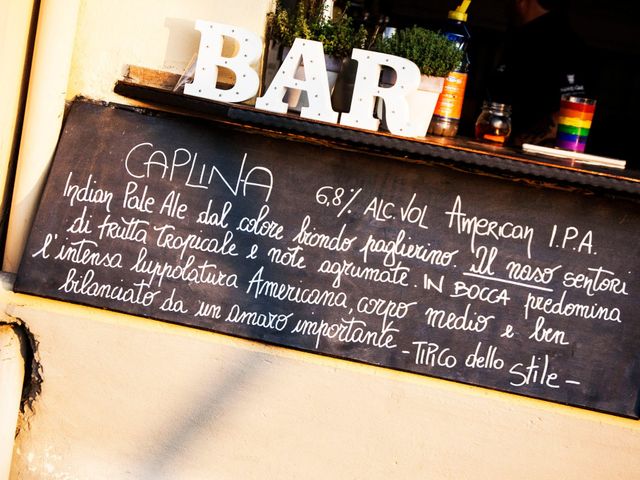 BAR
CAPLINA 6,8% ALC. VOL American I.P.A.
Indian Pale Ale dal colore biondo paglierino. Il naso sentori
di frutta tropicale e note agrumate. IN BOCCA predomina
l'intensa luppolatura Americana, corpo medio e ben
bilanciato da un amaro importante - TIPICO dello Stile -